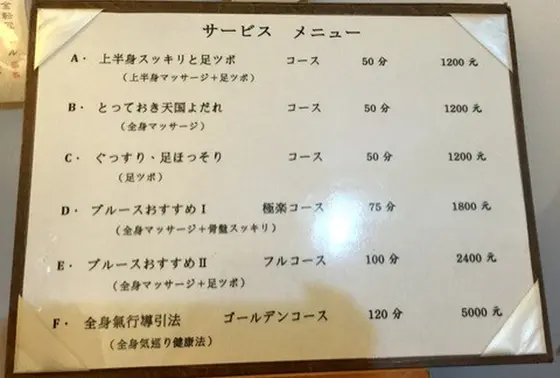 サービス メニュー
A・ 上半身スッキリと足ツボ コース 50 分 1200 元
(上半身マッサージ+足ツボ)
B・ とっておき天国よだれ コース 50 分 1200 元
(全身マッサージ)
C・ ぐっすり、足ほっそり コース 50 分 1200 元
(足ツボ)
D・ ブルースおすすめⅠ 極楽コース 75 分 1800 元
(全身マッサージ+骨盤スッキリ)
E・ ブルースおすすめⅡ フルコース 100 分 2400 元
(全身マッサージ+足ツボ)
F・ 全身氣行導引法 ゴールデンコース 120 分 5000 元
(全身気巡り健康法)